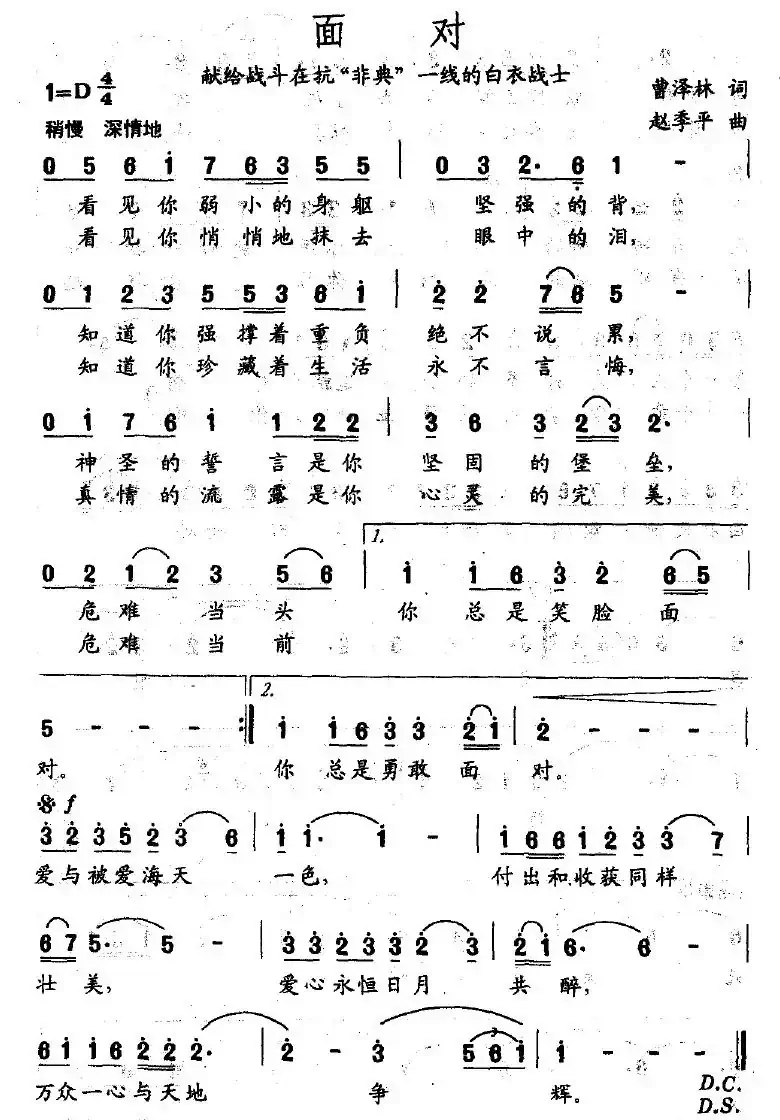 面 对
献给战斗在抗“非典”一线的白衣战士
1=D 4/4
曹泽林 词
稍慢 深情地
赵季平 曲
0 5 6 i 7 6 3 5 5 | 0 3 2· 6 1 - |
看见你弱小的身躯 坚强的背,
看见你悄悄地抹去 眼中的泪,
0 1 2 3 5 5 3 6 i | 2̇ 2̇ 7 6 5 - |
知道你强撑着重负 绝不说累,
知道你珍藏着生活 永不言悔,
0 i 7 6 i 1 2 2 | 3 6 3 2 3 2· |
神圣的誓言是你 坚固的堡垒,
真情的流露是你 心灵的完美,
1.
0 2 1 2 3 5 6 | i i 6 3̇ 2̇ 6 5 |
危难当头 你总是笑脸面
危难当前
2.
5 - - - :| i i 6 3̇ 3̇ 2̇ i | 2̇ - - - |
对。 你总是勇敢面 对。
𝄋 f
3̇ 2̇ 3̇ 5̇ 2̇ 3̇ 6 | i i· i - | i 6 6 i 2̇ 3̇ 3̇ 7 |
爱与被爱海天 一色, 付出和收获同样
6 7 5· 5 - | 3̇ 3̇ 2̇ 3̇ 3̇ 2̇ 3̇ | 2̇ i 6· 6 - |
壮美, 爱心永恒日月 共醉,
6 i i 6 2̇ 2̇ 2̇· | 2̇ - 3̇ 5 6 i | i - - - ‖
3
万众一心与天地 争 辉。
D.C.
D.S.